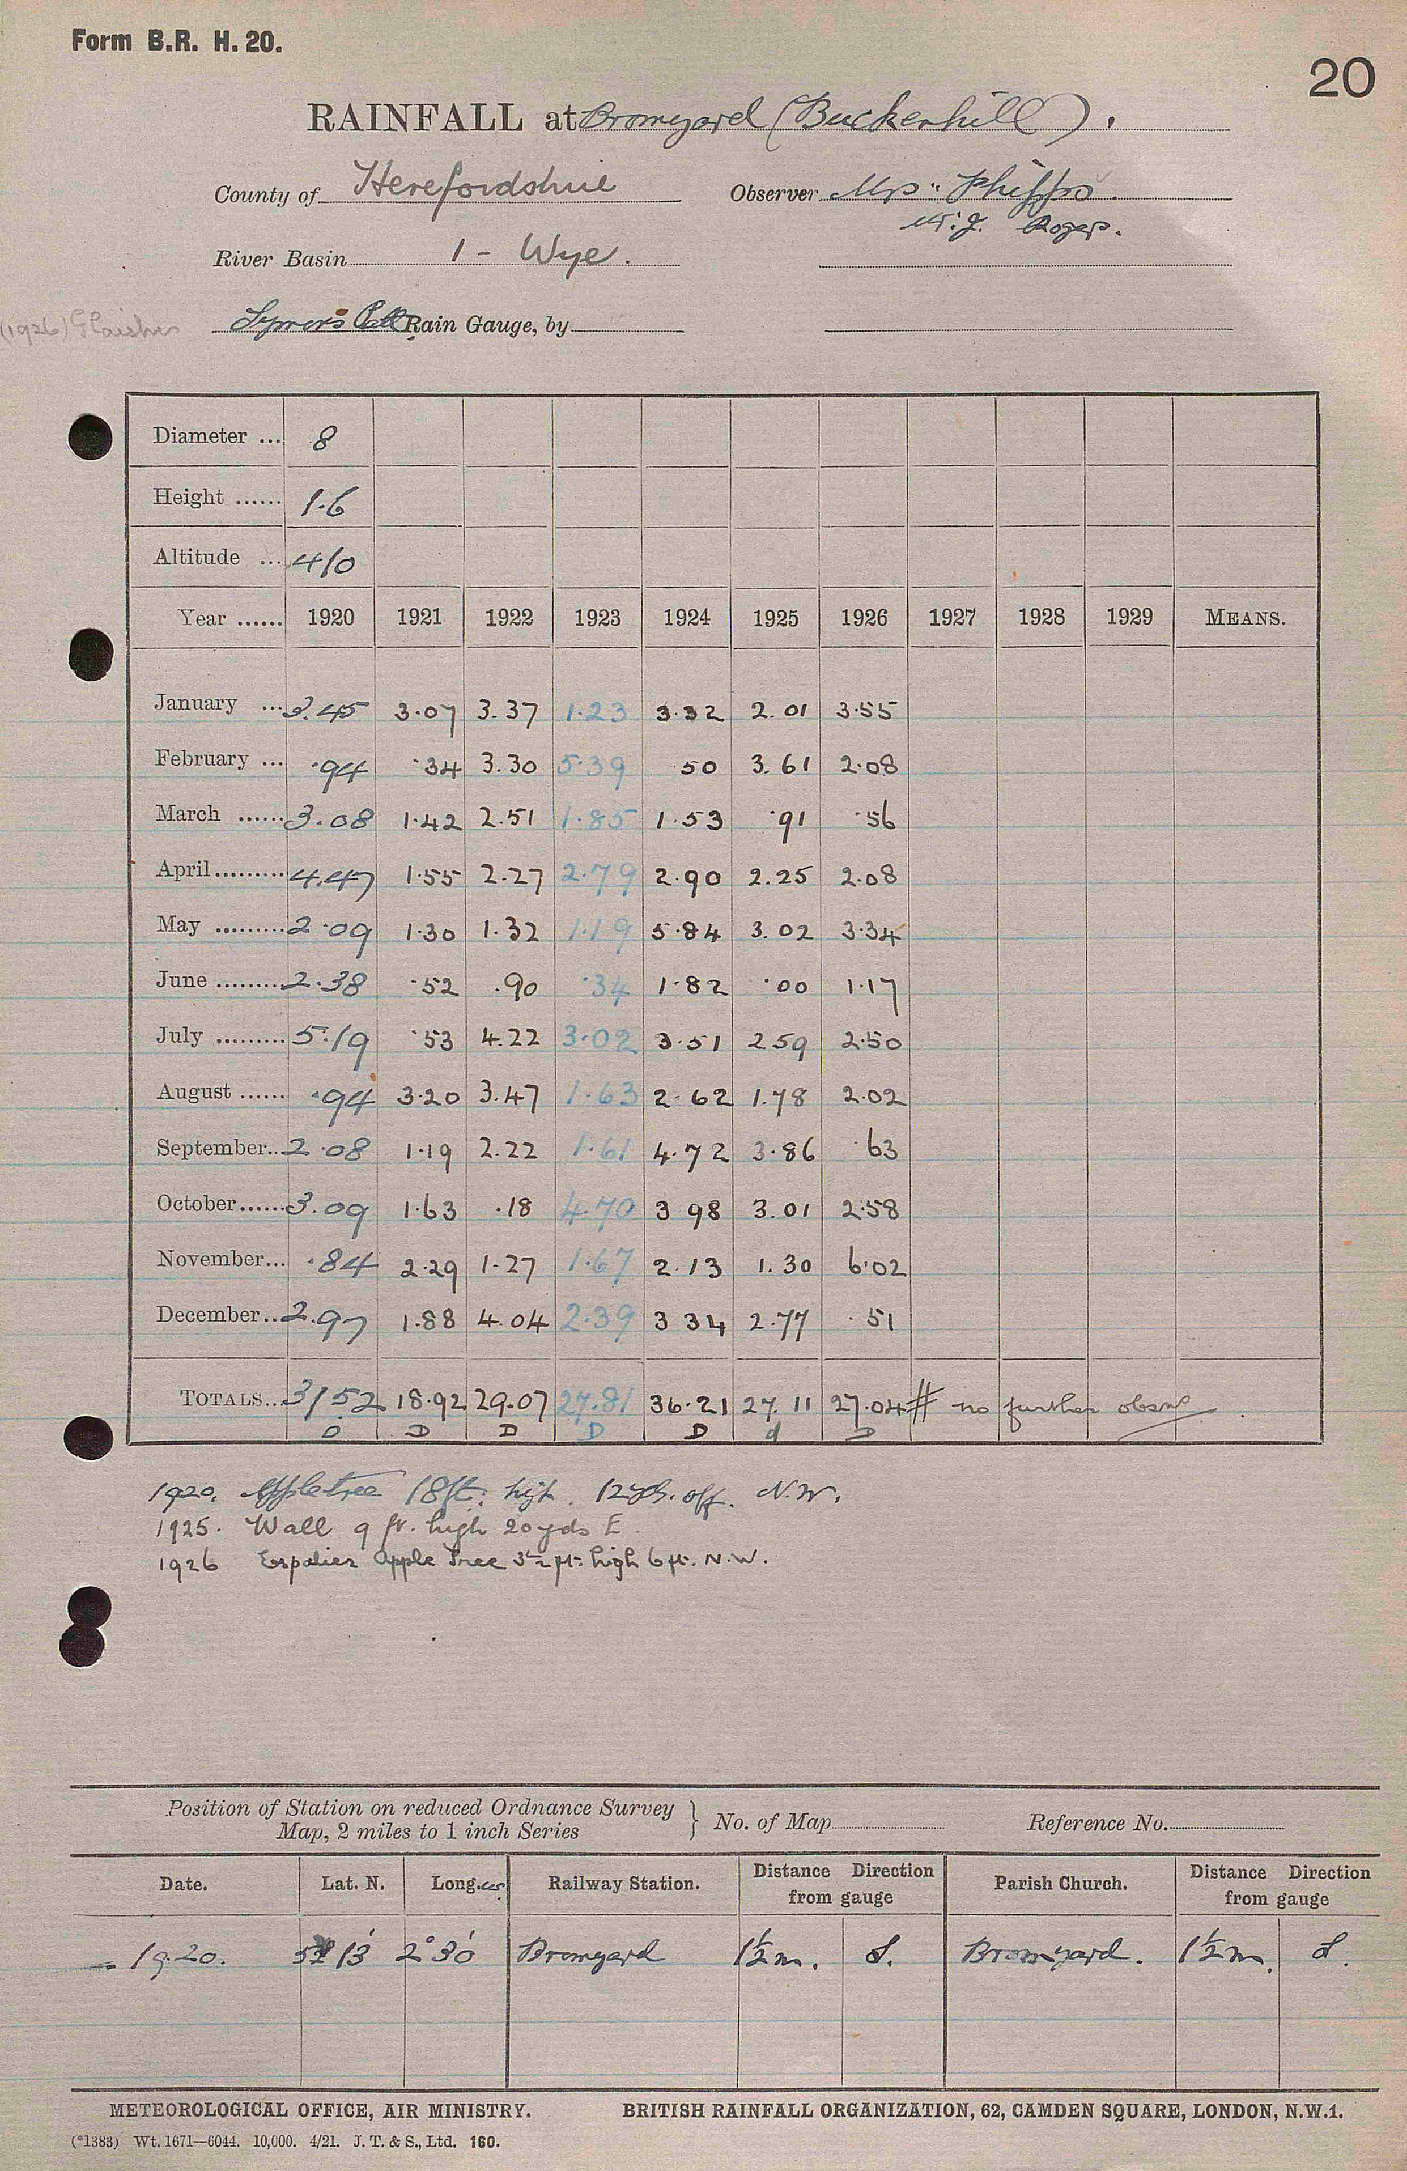 Form B.R. H. 20.
20
RAINFALL at Bromyard (Buckenhill).
County of Herefordshire Observer Mrs Phipps
W. J. Rogers.
River Basin 1 - Wye.
(1926) Glaisher Rain Gauge, by
Diameter ... 8
Height ...... 1.6
Altitude ... 410
Year ...... 1920 1921 1922 1923 1924 1925 1926 1927 1928 1929 MEANS.
January ... 3.45 3.07 3.37 1.23 3.32 2.01 3.55
February ... .94 .34 3.30 5.39 50 3.61 2.08
March ...... 3.08 1.42 2.51 1.85 1.53 .91 .56
April ......... 4.47 1.55 2.27 2.79 2.90 2.25 2.08
May ......... 2.09 1.30 1.32 1.19 5.84 3.02 3.34
June ......... 2.38 .52 .90 .34 1.82 .00 1.17
July ......... 5.19 .53 4.22 3.02 3.51 2 59 2.50
August ...... .94 3.20 3.47 1.63 2.62 1.78 2.02
September.. 2.08 1.19 2.22 1.61 4.72 3.86 .63
October...... 3.09 1.63 .18 4.70 3 98 3.01 2.58
November... .84 2.29 1.27 1.67 2.13 1.30 6.02
December.. 2.97 1.88 4.04 2.39 3 34 2.77 .51
TOTALS.. 31 52 18.92 29.07 27.81 36.21 27.11 27.04 # no further obsns
D D D D D d D
1920. Appletree 18ft. high. 12yds. off. N.W.
1925. Wall 9 ft. high 20yds E.
1926 Espalier Apple Tree 3½ ft. high 6 ft. N.W.
Position of Station on reduced Ordnance Survey
Map, 2 miles to 1 inch Series } No. of Map Reference No.
Date. Lat. N. Long. W. Railway Station. Distance Direction from gauge Parish Church. Distance Direction from gauge
1920. 52° 13' 2° 30' Bromyard 1½m. S. Bromyard. 1½m. S.
METEOROLOGICAL OFFICE, AIR MINISTRY. BRITISH RAINFALL ORGANIZATION, 62, CAMDEN SQUARE, LONDON, N.W.1.
(*1383) Wt. 1671—6044. 10,000. 4/21. J. T. & S., Ltd. 160.